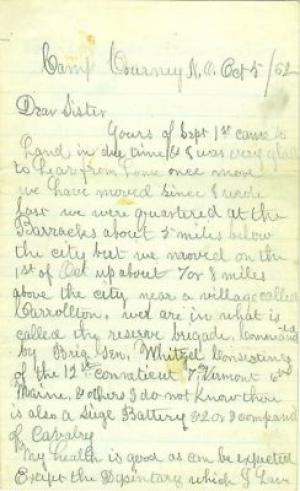 Camp Kearney N.O. Oct 5/62
Dear Sister
Yours of Sept 1st came to
hand in due time & I was very glad
to hear from home once more
we have moved since I wrote
last we were quartered at the
Barracks about 5 miles below
the city but we moved on the
1st of Oct up about 7 or 8 miles
above the city near a village called
Carrollton. we are in what is
called the reserve brigade, Commanded
by Brig Gen, Whitzel Consisting
of the 12th Connaticut 7th Vermont 6th
Maine, & others I do not know there
is also a Sige Battery & 2 or 3 compand
of Calvalry
My health is good as can be expected
Except the Dysintary which I have